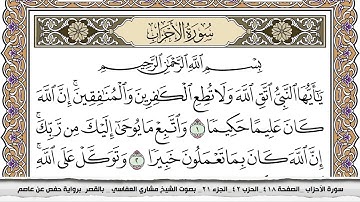 سُورَةُ الأَحْزَابِ
بِسْمِ اللَّهِ الرَّحْمَٰنِ الرَّحِيمِ
يَا أَيُّهَا النَّبِيُّ اتَّقِ اللَّهَ وَلَا تُطِعِ الْكَافِرِينَ وَالْمُنَافِقِينَ ۗ إِنَّ اللَّهَ
كَانَ عَلِيمًا حَكِيمًا ١ وَاتَّبِعْ مَا يُوحَىٰ إِلَيْكَ مِن رَّبِّكَ ۚ
إِنَّ اللَّهَ كَانَ بِمَا تَعْمَلُونَ خَبِيرًا ٢ وَتَوَكَّلْ عَلَى اللَّهِ ۚ
سورة الأحزاب الصفحة ٤١٨ الحزب ٤٢ الجزء ٢١ بصوت الشيخ مشاري العفاسي بالقصر برواية حفص عن عاصم